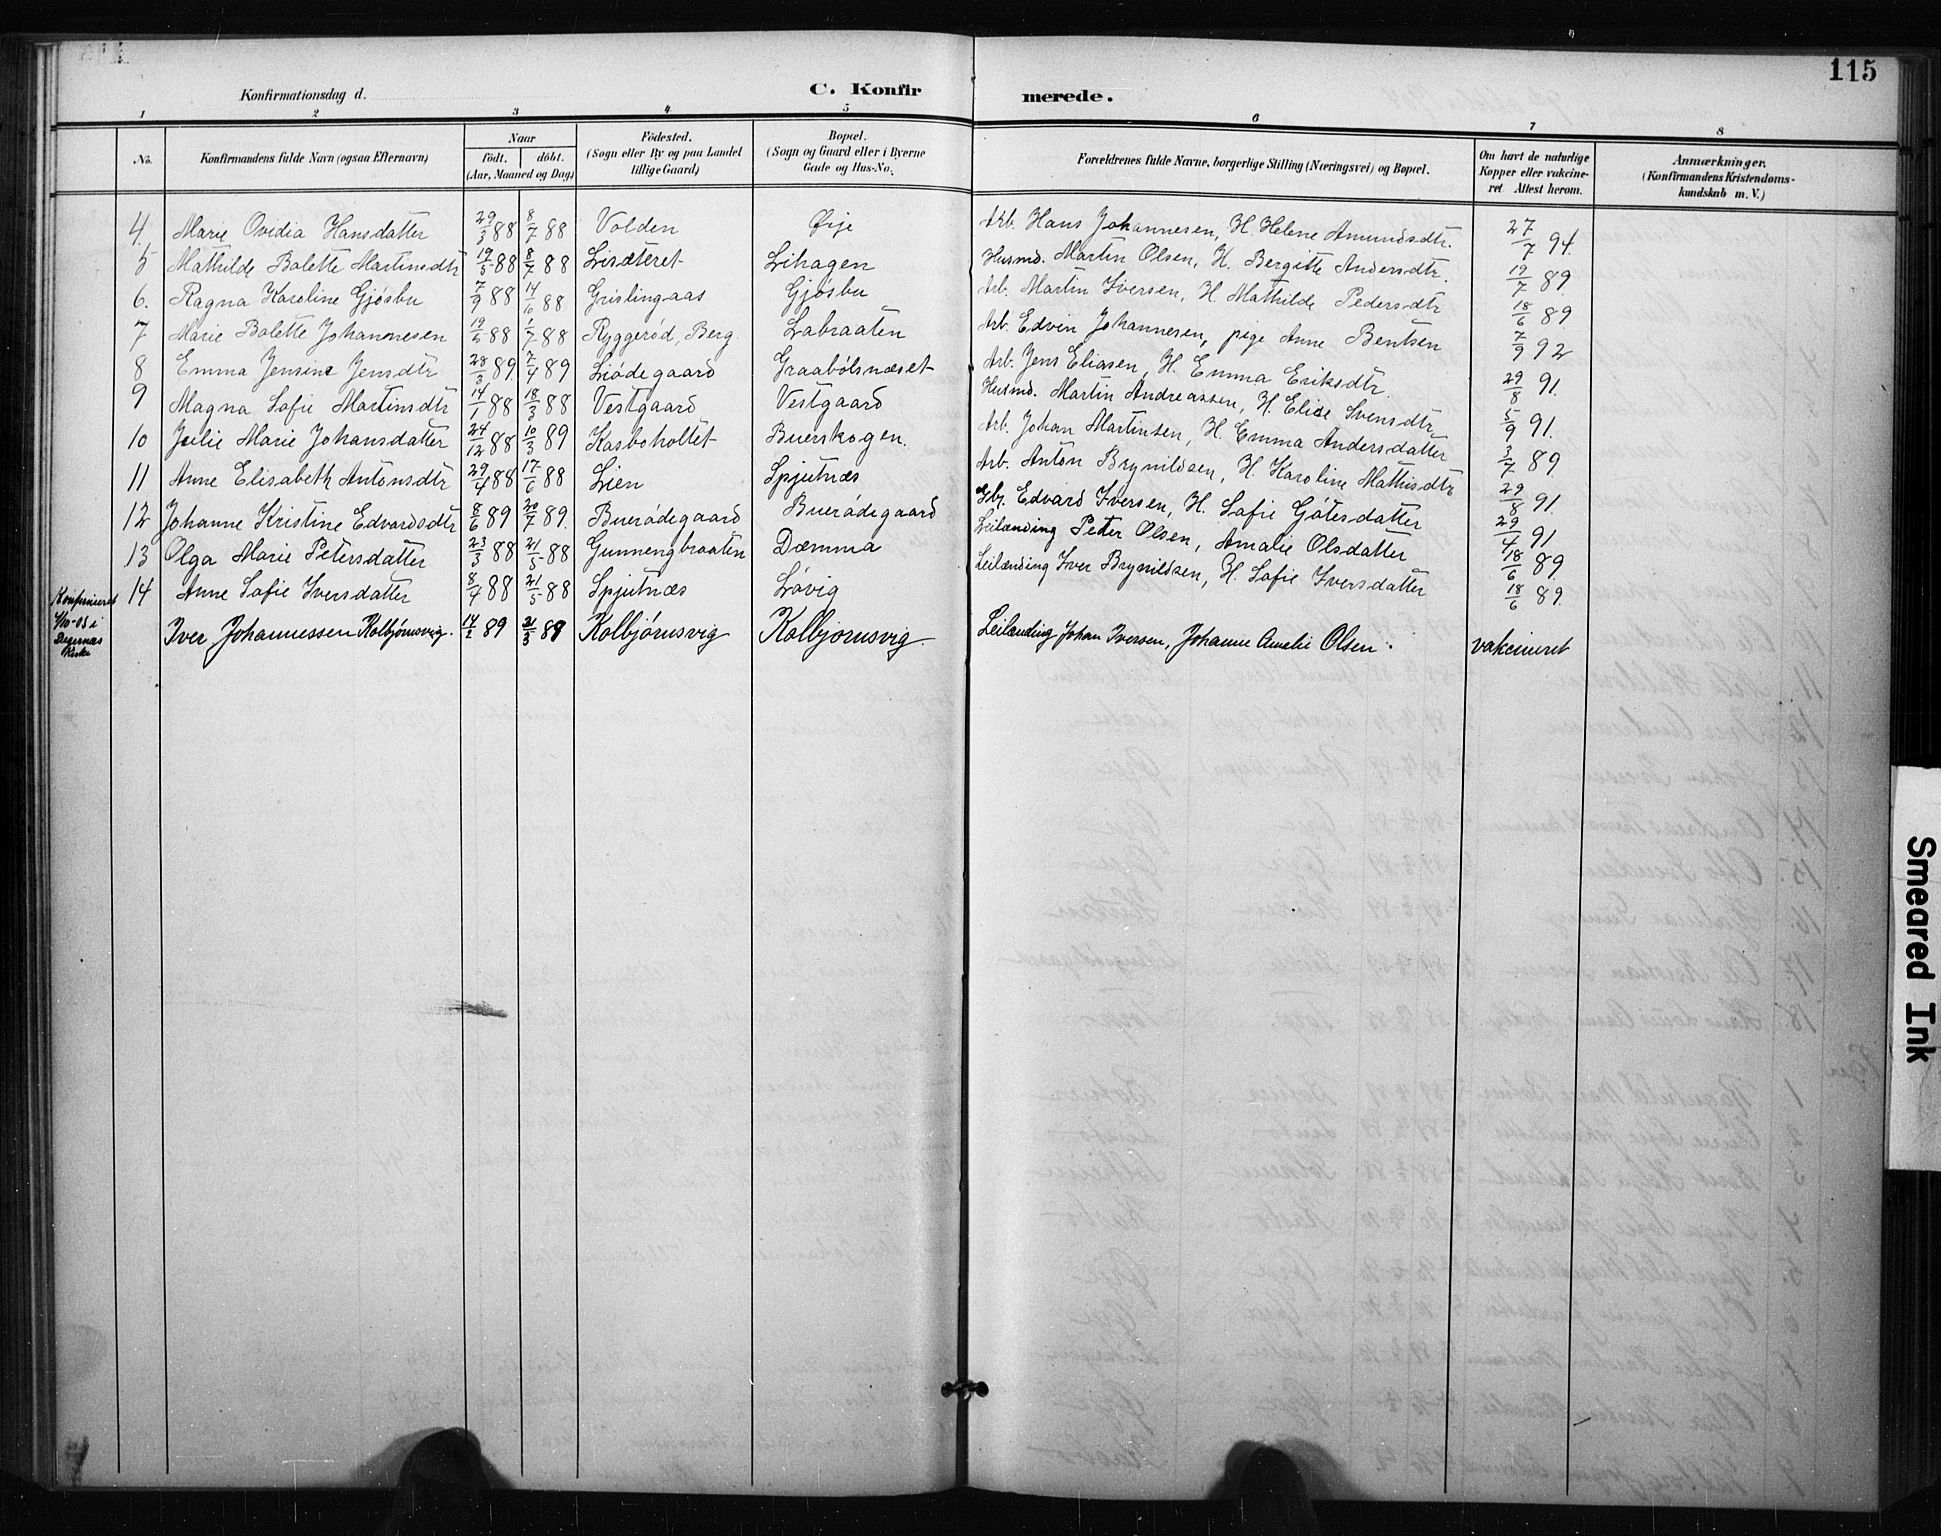 115
Konfirmationsdag d. C. Konfir merede.
1 2 3 4 5 6 7 8
No. Konfirmandens fulde Navn (ogsaa Efternavn) Naar født. døbt. (Aar, Maaned og Dag) Födested. (Sogn eller By og paa Landet tillige Gaard) Bopæl. (Sogn og Gaard eller i Byerne Gade og Hus-No. Forældrenes fulde Navne, borgerlige Stilling (Næringsvei) og Bopæl. Om havt de naturlige Kopper eller vakcineret Attest herom. Anmærkninger. (Konfirmandens Kristendomskundskab m. V.)
4. Marie Ovidia Hansdatter 29/3 88 8/7 88 Volden Øije Arb. Hans Johannesen, H. Helene Amundsdtr. 27/7 94.
5 Mathilde Bolette Martinsdtr 19/5 88 8/7 88 Lisæteret Lihagen Husmd. Martin Olsen, H. Bergitte Andersdtr. 19/7 89.
6. Ragna Karoline Gjøsbu 7/9 88 14/6 88 Grislingaas Gjøsbu Arb. Martin Iversen, H. Mathilde Pedersdtr 18/6 89
7 Marie Bolette Johannesen 19/5 88 1/7 88 Ryggerød, Berg. Labraaten Arb. Edvin Johannesen, pige Anne Bentsen 7/9 92
8 Emma Jensine Jensdtr 28/3 89. 7/4 89 Liødegaard Graabølsnæset Arb. Jens Eliasen, H. Emma Eriksdtr. 29/8 91.
9 Magna Sofie Martinsdtr 14/1 88 18/3 88 Vestgaard Vestgaard Husmd. Martin Andreassen, H. Elise Svensdtr. 5/9 91.
10 Julie Marie Johansdatter 24/12 88 10/3 89 Kasboholtet Buerskogen. Arb. Johan Martinsen, H. Emma Andersdatter 3/7 89.
11 Anne Elisabeth Antonsdtr 29/4 88 17/6 88 Lien Spjutnæs Arb. Anton Brynildsen, H. Karoline Mathisdtr 29/8 91.
12 Johanne Kristine Edvardsdtr 8/6 89 20/7 89. Buerødegaard Buerødegaard Gbr. Edvard Iversen, H. Sofie Gøtesdatter 29/4 91
13 Olga Marie Petersdatter 23/3 88 21/5 88 Gunnengbraaten Dæmma Leilænding Peter Olsen, Amalie Olsdatter 18/6 89.
14 Anne Sofie Iversdatter 8/4 88 21/5 88 Spjutnæs Løvig Leilænding Iver Brynildsen, H. Sofie Iversdatter 18/6 89.
Konfirmeret 1/10-05 i Degernæs Kirke
Iver Johannessen Kolbjørnsvig. 14/2 89 21/3 89 Kolbjørnsvig Kolbjørnsvig Leilænding Johan Iversen, Johanne Amalie Olsen. vakcineret
Smeared Ink